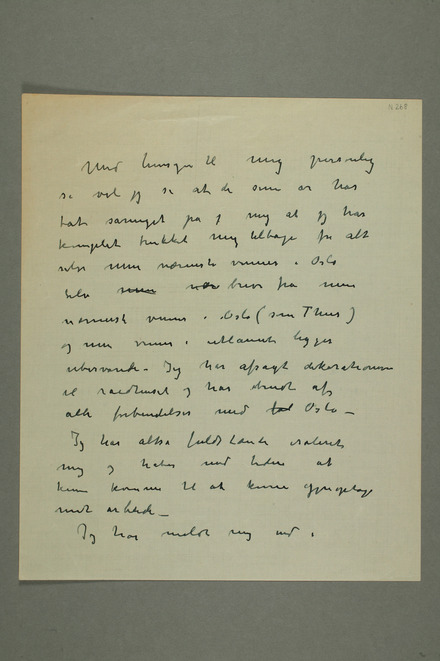 N 268
Med hensyn til mig personlig
så vil jeg si at de siste år har
tat på mig at jeg har
komplet trukket mig tilbage fra alt
selv mine nærmeste venner i Oslo
Selv breve fra mine
nærmeste venner i Oslo (som Thiis)
og mine venner i utlandet ligger
ubesvarede. Jeg har afsagt dekorationen
til raadhuset og har brudt af
alle forbindelser med Oslo –
Jeg har altså fuldstændig isoleret
mig og håber med tiden at
kunne komme til at kunne gjenoptage
mit arbeide –
Jeg har meldt mig ud i